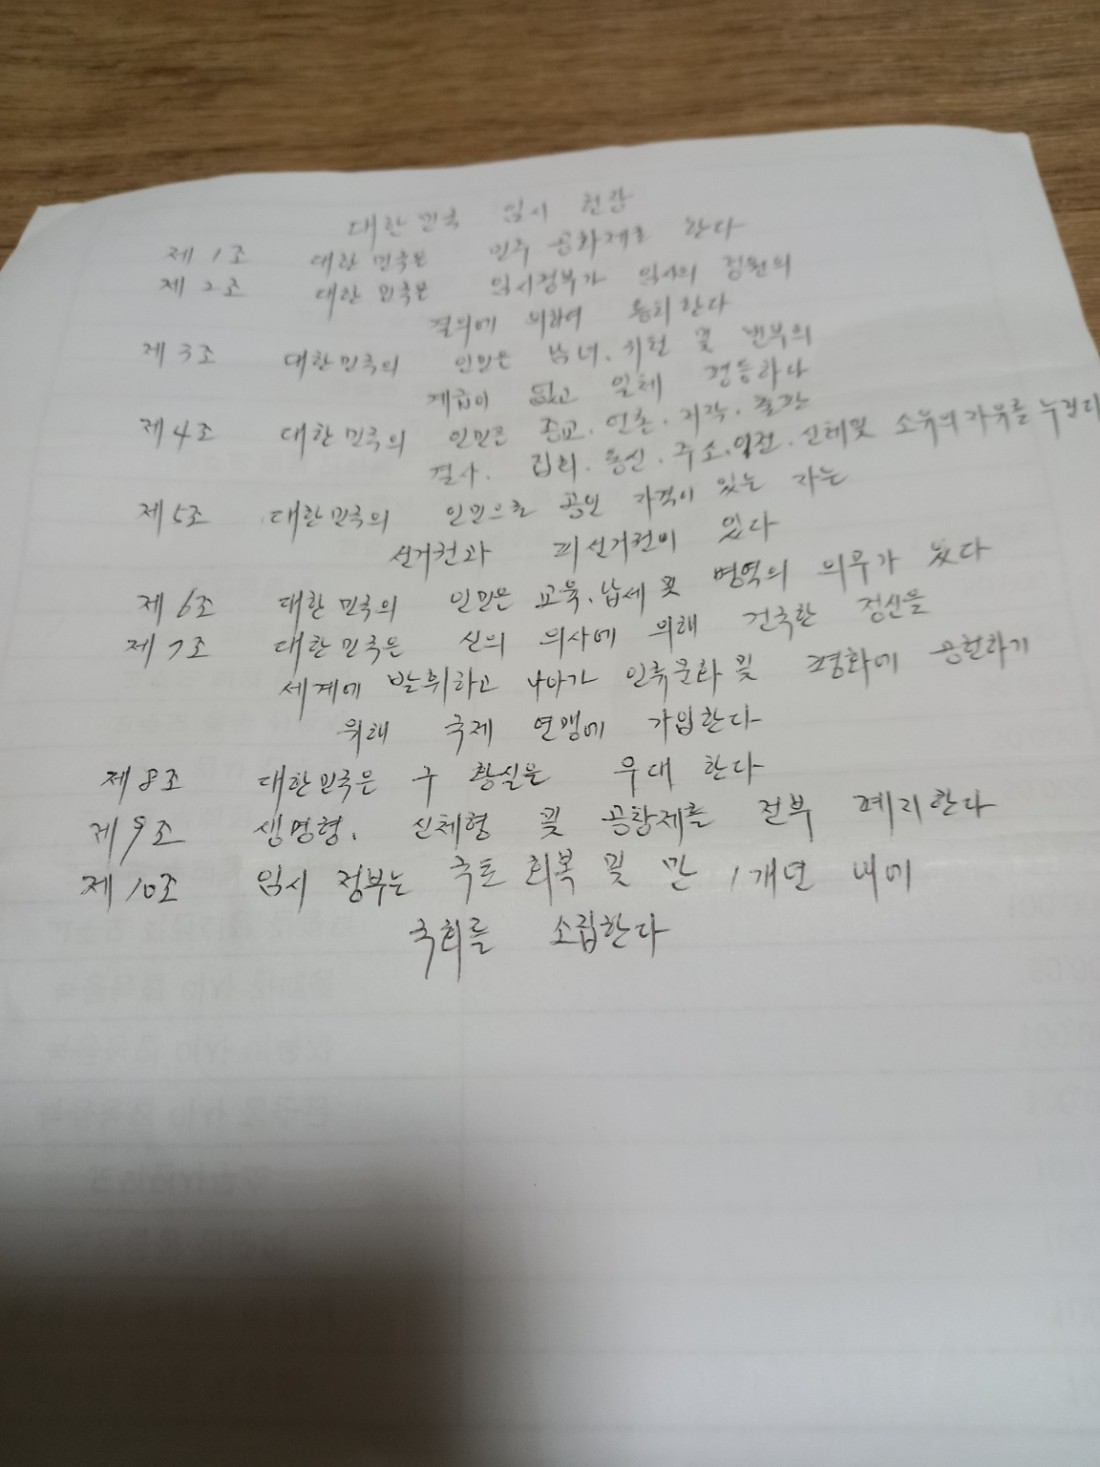 대한민국 임시 헌장
제1조 대한민국은 민주 공화제로 한다
제2조 대한민국은 임시정부가 임시의정원의
결의에 의하여 통치한다
제3조 대한민국의 인민은 남녀, 귀천 및 빈부의
계급이 없고 일체 평등하다
제4조 대한민국의 인민은 종교, 언론, 저작, 출판
결사, 집회, 통신, 주소, 이전, 신체 및 소유의 자유를 누린다
제5조 대한민국의 인민으로 공민 자격이 있는 자는
선거권과 피선거권이 있다
제6조 대한민국의 인민은 교육, 납세 및 병역의 의무가 있다
제7조 대한민국은 신의 의사에 의해 건국한 정신을
세계에 발휘하고 나아가 인류문화 및 평화에 공헌하기
위해 국제 연맹에 가입한다
제8조 대한민국은 구 황실을 우대 한다
제9조 생명형, 신체형 및 공창제를 전부 폐지한다
제10조 임시 정부는 국토 회복 및 만 1개년 내에
국회를 소집한다